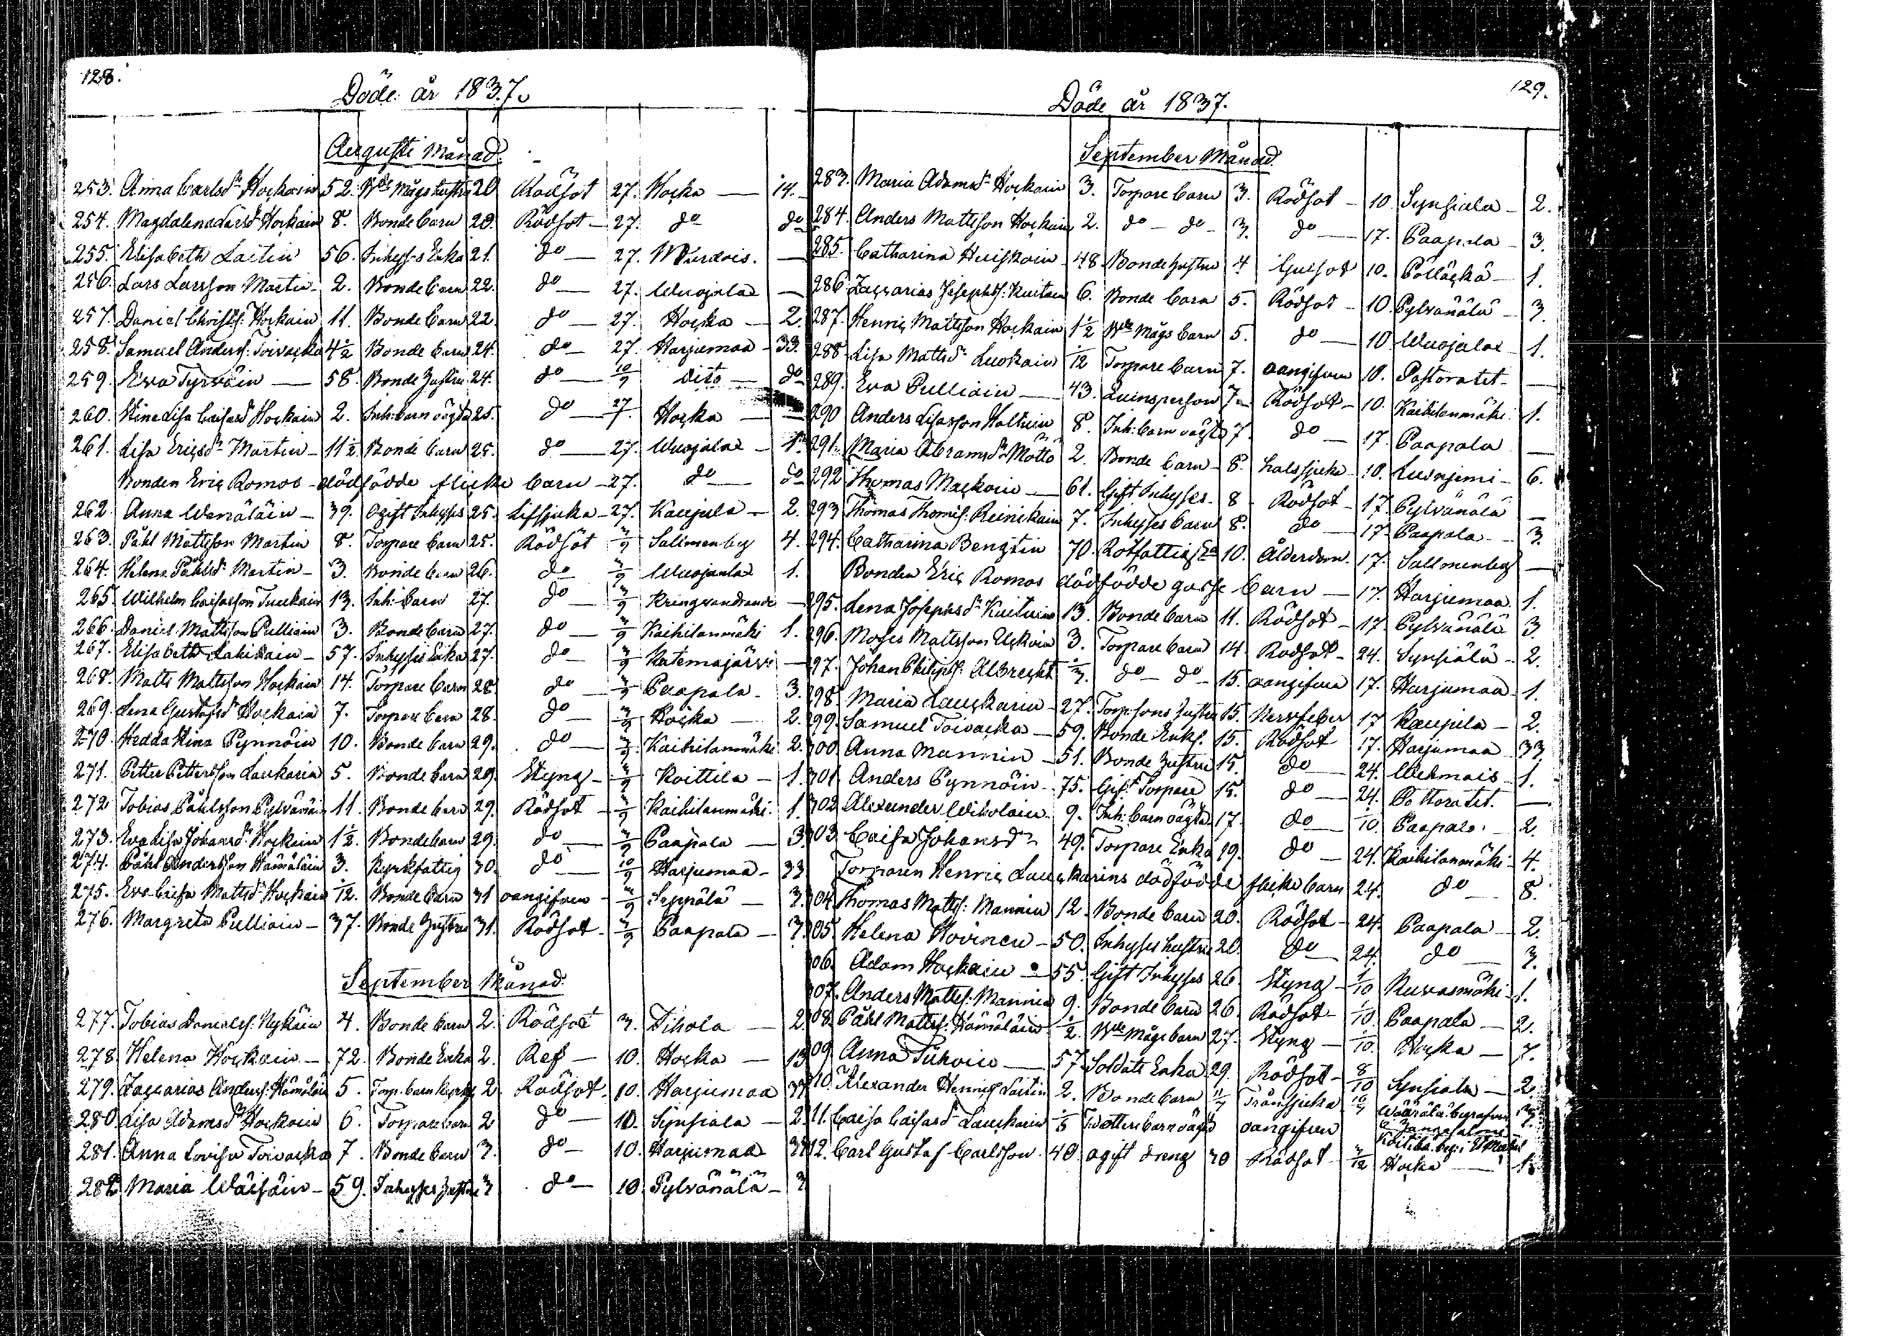 128.
Döde år 1837.
Augusti Månad
253. Anna Carlsdr Hockain 52. Wds Mågs hustru 20 Rödsot 27. Hocka — 14.
254. Magdalena Larsdr Hockain 8. Bonde Barn 20. Rödsot — 27. do do
255. Elisabeth Laitin 56. Inhyses Enka 21. do — 27. —
256. Lars Larsson Martin 2. Bonde Barn 22. do — 27. Wuojala —
257. Daniel Hockain 11. Bonde Barn 22. do — 27. Hocka — 2.
258. Samuel Anders: Toivacka 4½ Bonde Barn 24. do — 27. Harjumaa — 33.
259. Eva Tyrväin — 58. Bonde Hustru 24. do — 10/9 dito — do
260. Stina Lisa Caisasdr Hockain 2. Inh: barn oägta 25. do — 27. Hocka —
261. Lisa Ericsdr Martin — 11½ Bonde Barn 25. do — 27. Wuojala — 1.
Bonden Eric Romos dödfödde flicke barn — 27. do — do
262. Anna Wenäläin — 39. Ogift Inhyses 25. Lifsjuka — 27. Kaujula — 2.
263. Påhl Mattsson Martin 8. Torpare Barn 25. Rödsot 3/9 Sallmenbeg 4.
264. Helena Påhlsdr Martin — 3. Bonde Barn 26. do 3/9 Wuojala 1.
265. Wilhelm Caisasson Tuukain 13. Inh: Barn 27. do — 3/9 Kringvandrande —
266. Daniel Mattsson Pulliain 3. Bonde Barn 27. do — 3/9 Kaihilanmäki 1.
267. Elisabeth Lahikain — 57. Inhyses Enka 27. do — 3/9 Katemajärvi —
268. Matts Mattsson Hockain 14. Torpare Barn 28. do — 3/9 Paapala — 3.
269. Lena Gustafsdr Hockain 7. Torpare Barn 28. do — 3/9 Hocka — 2.
270. Hedda Stina Pynnöin 10. Bonde barn 29. do — 3/9 Kaihilanmäki 2.
271. Petter Pettersson Laukarin 5. Bonde barn 29. Styng — 3/9 Koittila — 1.
272. Tobias Påhlsson Pylvänäin 11. Bonde barn 29. Rödsot — 3/9 Kaihilanmäki 1.
273. Eva Lisa Johansdr Hockain 1½ Bonde barn 29. do — 3/9 Paapala — 3.
274. Påhl Andersson Hämäläin 3. Kyrkfattig 30. do — 10/9 Harjumaa — 33
275. Eva Caisa Mattsdr Hockain 1/12. Bonde Barn 31 oangifven — 3/9 Seppälä — 3.
276. Margreta Pulliain — 37. Bonde Hustru 31. Rödsot — 3/9 Paapala — 3.
September Månad
277. Tobias Daniels: Nykäin 4. Bonde Barn 2. Rödsot 3. Tihola — 2
278. Helena Hockain — 72. Bonde Enka 2. Ref — 10. Hocka — 13
279. Zacarias Anders: Hämäläin 5. Torp. barn 2. Rödsot — 10. Harjumaa 33
280. Lisa Adamsdr Hockain 6. Torpare barn 2 do — 10. Synsiala — 2.
281. Anna Lovisa Toivacka 7. Bonde Barn 3. do — 10. Harjumaa 33
282. Maria Wäisäin — 59. Inhyses Hustru 3 do — 10 Pylvänälä — 3
129.
Döde år 1837.
September Månad
283. Maria Adamsdr Hockain 3. Torpare barn 3. Rödsot — 10. Synsiala — 2.
284. Anders Mattsson Hockain 2. do — do — 3. do — 17. Paapala — 3.
285. Catharina Huiskoin — 48. Bonde hustru 4 Gulsot 10. Pölläckä — 1.
286 Zacarias Josephs: Kuitun 6. Bonde Barn 5. Rödsot — 10. Pylvänälä 3.
287. Henric Mattsson Hockain 1½ Wds Mågs Barn 5. do — 10. Wuojala — 1.
288. Lisa Mattsdr Luokain 1/12 Torpare Barn 7. oangifven 10. Pastoratet —
289. Eva Pulliain — 43. Quinsperson 7 — Rödsot — 10. Kaihilanmäki 1.
290 Anders Lisasson Holtuin 8. Inh: barn oägta 7. do — 17. Paapala —
291. Maria Abramsdr Mottö 2. Bonde barn — 8. halssjuka — 10. Lusnjemi — 6.
292 Thomas Mackoin — 61. Gift Inhyses. 8 — Rödsot — 17. Pylvänälä —
293 Thomas Thoms: Reinikain 7. Inhyses Barn 8. do — 17. Paapala — 3.
294. Catharina Bengtin 70. Rotfattig Ea 10. Ålderdom. 17. Sallmenbeg —
Bonden Eric Romos dödfödde gosse barn — 17. Harjumaa 1.
295. Lena Josephsdr Kuituin 13. Bonde barn 11. Rödsot — 17. Pylvänälä 3.
296. Moses Mattsson Uckoin 3. Torpare barn 14 Rodsot — 24. Synsiälä — 2.
297. Johan Philips: Albrecht do — do — 15. oangifven 17. Harjumaa — 1.
298. Maria Lauckarin — 27. Torp: sons hustru 15. Nervfeber 17 Kaujula — 2.
299. Samuel Toivacka — 59. Bonde Enkl. 15. Rödsot 17. Harjumaa 33
300. Anna Mannin — 51. Bonde Hustru 15. do — 24. Wehmais — 1.
301. Anders Pynnöin — 75. Gift Torpare 15. do — 24. Pastoratet. —
302. Alexander Wikolain 9. Inh: barn oägta 17. do — 1/10 Paapala — 2.
303. Caisa Johansdr 49. Torpare Enka 19. do — 24. Kaihilanmäki — 4.
Torparen Henric Lauckarins dödfödde flicke barn 24. do — 8.
304. Thomas Matts: Mannin 12. Bonde barn 20. Rödsot — 24. Paapala — 2.
305. Helena Hovinen — 50. Inhyses hustru 20. do — 24. do — 3.
306. Adam Hockain — 55. Gift Inhyses 26. Styng — 1/10 Ruvasmäki — 1.
307. Anders Matts: Mannin 9. Bonde barn 26. Rödsot — 1/10. Paapala — 2.
308. Påhl Matts: Hämäläin ½. Wds Mågs barn 27. Styng — 1/10. Hocka — 7.
309. Anna Tuhoin — 57 Soldats Enka 29. Rödsot — 8/10 Synsiala — 2.
310. Alexander Henrics Laitin 2. Bonde barn 11/7 Tränsjuka 16/7
311. Caisa Caisasdr Lauckain 1/5 barn oägta oangifven
312. Carl Gustaf Carlsson. 40 ogift dreng 30 Rödsot — 3/12 Hocka — 1.